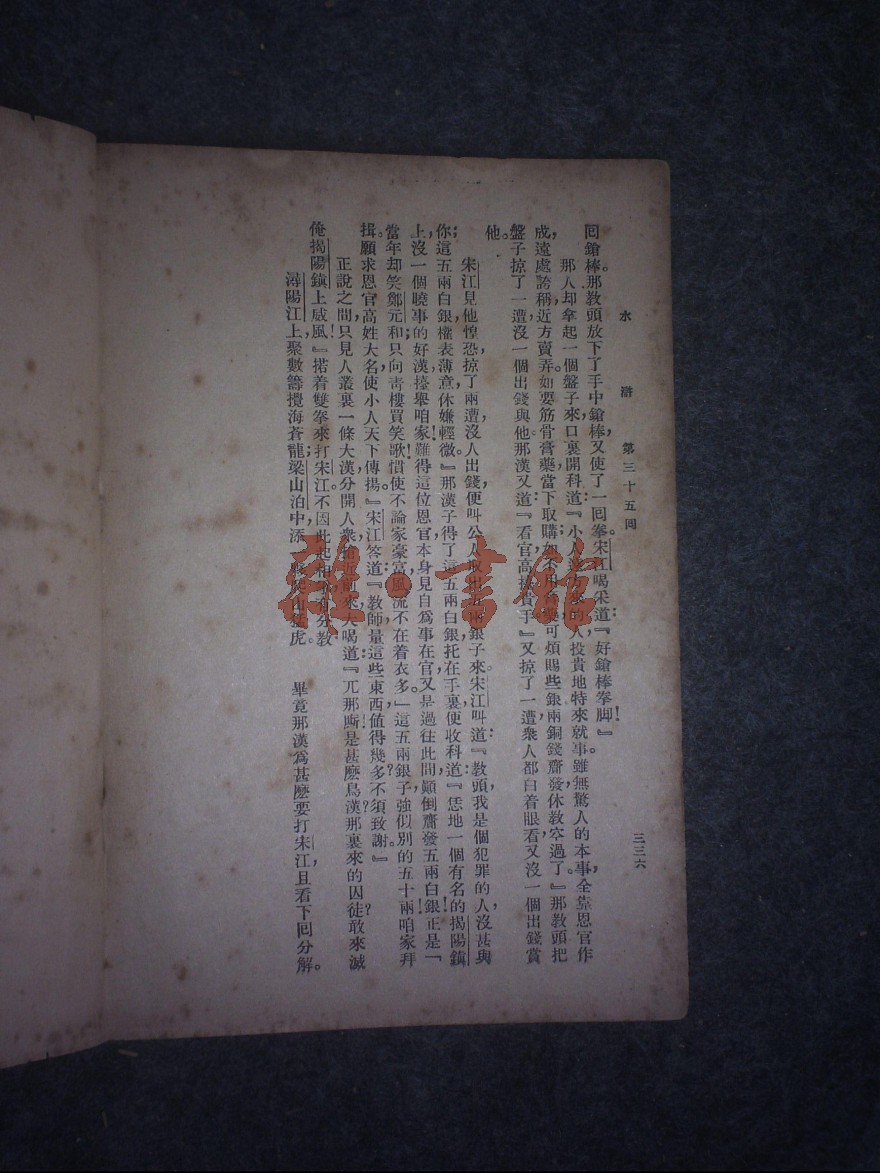 水滸 第三十五回 三三六
回鎗棒。那教頭放下了手中鎗棒，又使了一回拳。宋江喝采道：『好鎗棒拳脚！』
那人却拿起一個盤子來，口裏開科道：『小人遠方來的人，投貴地特來就事，雖無驚人的本事，全靠恩官作
成，遠處誇稱，近方賣弄。如要筋骨膏藥，當下取購；如不用膏藥，可煩賜些銀兩銅錢齎發，休教空過了。』那教頭把
盤子掠了一遭，沒一個出錢與他。那漢又道：『看官高擡貴手。』又掠了一遭，衆人都白着眼看，又沒一個出錢賞
他。
宋江見他惶恐，掠了兩遭，沒人出錢，便叫公人取出五兩銀子來。宋江叫道：『教頭，我是個犯罪的人，沒甚與
你；這五兩白銀權表薄意，休嫌輕微。』那漢子得了這五兩白銀，托在手裏，便收科道：『恁地一個有名的揭陽鎮
上，沒一個曉事的好漢擡舉咱家！難得這位恩官，本身見自爲事在官，又是過往此間，顚倒齎發五兩白銀！正是「
當年却笑鄭元和，只向靑樓買笑歌！慣使不論家豪富，風流不在着衣多。」這五兩銀子強似別的五十兩！咱家拜
揖。願求恩官高姓大名，使小人天下傳揚。』宋江答道：『教師，量這些東西，值得幾多？不須致謝。』
正說之間，只見人叢裏一條大漢分開人衆，搶近前來，大喝道：『兀那厮！是甚麽鳥漢？那裏來的囚徒？敢來滅
俺揭陽鎮上威風！』搭着雙拳來打宋江。不因此起相爭，有分教
潯陽江上，聚數籌攪海蒼龍；梁山泊中，添 爬山猛虎。 畢竟那漢爲甚麽要打宋江，且看下回分解。
雜·書館